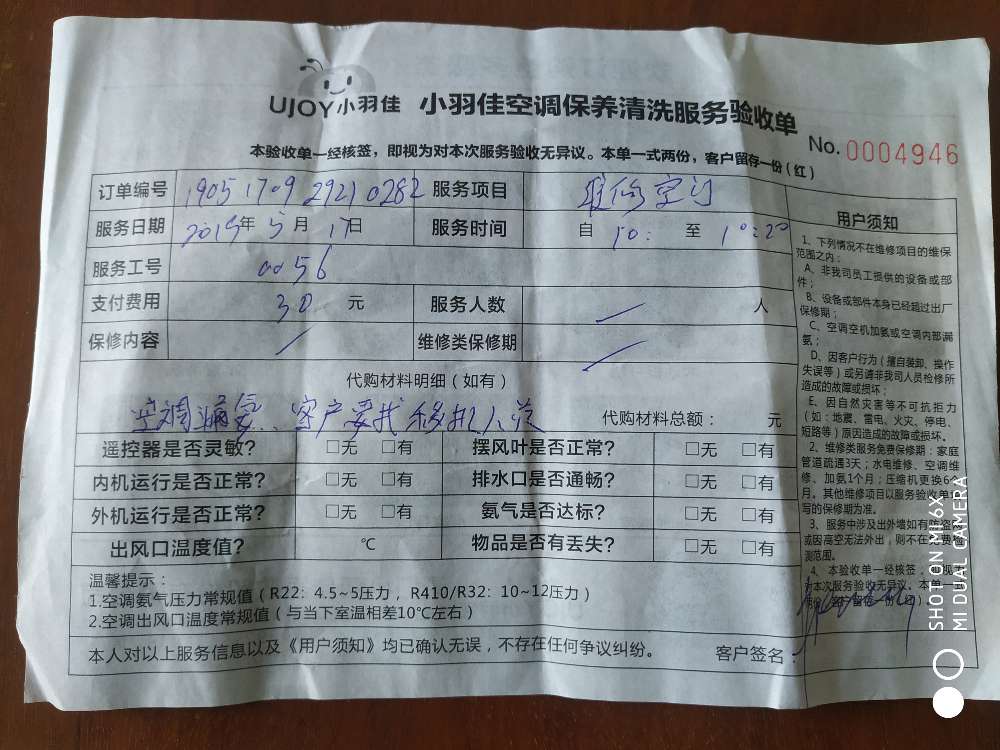 UJOY小羽佳 小羽佳空调保养清洗服务验收单
No.0004946
本验收单一经核签，即视为对本次服务验收无异议。本单一式两份，客户留存一份（红）
订单编号 1905 1709 2921 0282 服务项目 维修空调
服务日期 2019年5月17日 服务时间 自 10: 至 10:20
服务工号 0056
支付费用 30 元 服务人数 人
保修内容 维修类保修期
代购材料明细（如有）
空调漏氨.. 客户要找 代购材料总额： 元
遥控器是否灵敏？ □无 □有 摆风叶是否正常？ □无 □有
内机运行是否正常？ □无 □有 排水口是否通畅？ □无 □有
外机运行是否正常？ □无 □有 氨气是否达标？ □无 □有
出风口温度值？ ℃ 物品是否有丢失？ □无 □有
温馨提示：
1.空调氨气压力常规值（R22：4.5~5压力，R410/R32：10~12压力）
2.空调出风口温度常规值（与当下室温相差10℃左右）
本人对以上服务信息以及《用户须知》均已确认无误，不存在任何争议纠纷。 客户签名：
用户须知
1、下列情况不在维修项目的维保
范围之内：
A、非我司员工提供的设备或部
件；
B、设备或部件本身已经超过出厂
保修期；
C、空调空机加氨或空调内部漏
氨；
D、因客户行为（擅自装卸、操作
失误等）或另请非我司人员检修所
造成的故障或损坏；
E、因自然灾害等不可抗拒力
（如：地震、雷电、火灾、停电、
短路等）原因造成的故障或损坏。
2、维修类服务免费保修期：家庭
管道疏通3天；水电维修、空调维
修、加氨1个月；压缩机更换6个
月。其他维修项目以服务验收单
写的保修期为准。
3、服务中涉及出外墙如有防盗网
或因高空无法外出，则不在免费检
测范围。
4、本验收单一经核签，即视为
对本次服务验收无异议。本单一
SHOT ON MI 6X
MI DUAL CAMERA